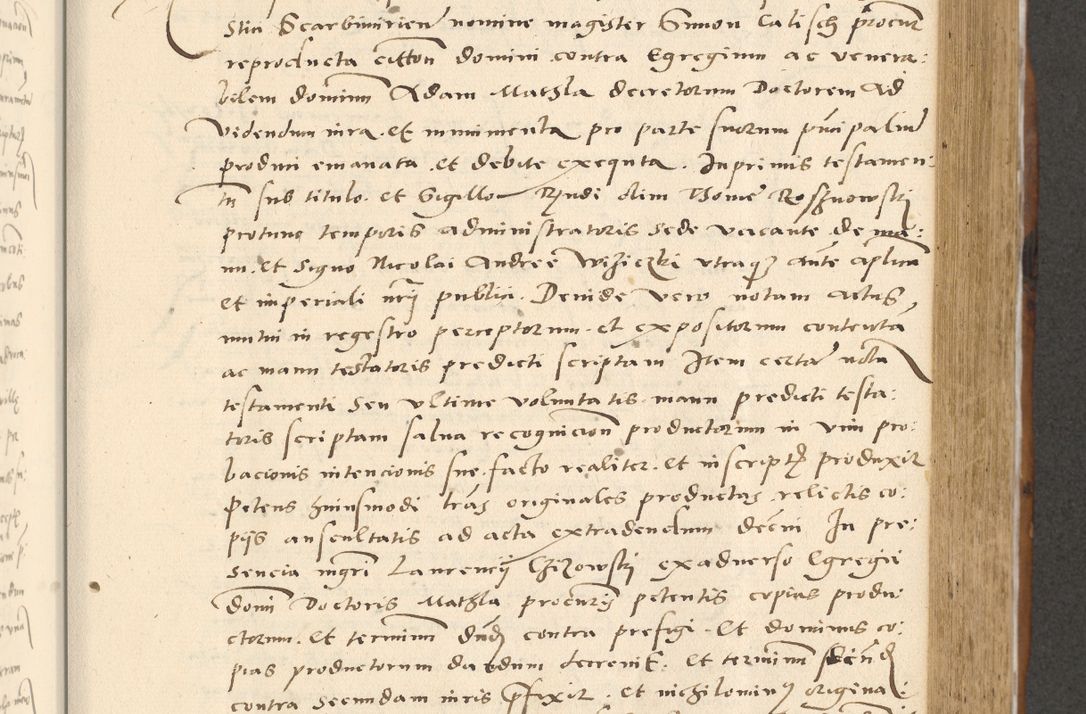 Stin Scarbimirien nomine magister Simon Calisch procur
reproducta citton domini contra Egregium ac venera:
bilem dominum Adam Mathla decretorum Doctorem Ad
videndum iura et munimenta pro parte suorum pncipalium
produci emanata et debite exequta. Inprimis testamen:
tm sub titulo et Sigillo Rndi olim Thome Rosznowskj
protunc temporis administratoris Sede vacante de ma:
nu et Signo Nicolai Andree Wiziczki vtraqz aute aplica
et imperiali nrij publici. Deinde vero notam actus
mutui in regestro perceptorum et expositorum contenta
ac manu testatoris predicti scriptam Item certa nota
testamenti Seu vltime voluntatis manu predicti testa:
toris scriptam salua recognicion productorum in vim pro:
bacionis intencionis sue facto realiter et in scriptis produxit
Petens huiusmodi lras originales productas relictis co:
pijs auscultatis ad acta extradendum decerni In pre:
sencia mgri Laurencij Chizowskj exaduerso Egregii
domi Doctoris Mathla procuris petentis copias produ:
ctorum et terminum dnd contra prefigi Et dominus co:
pias productorum dandum decreuit. Et terminum
contra Secundam iuris pfixit. et nichilominus origina: